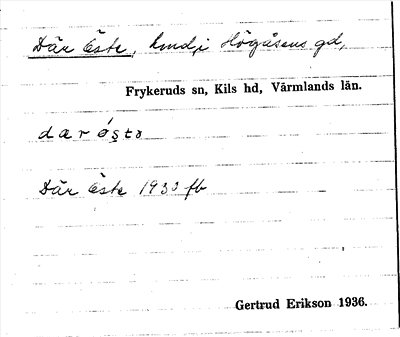 Där Öste, hmd, i Högåsens gd,
Frykeruds sn, Kils hd, Värmlands län.
dær ǿstə
Där Öste 1933 fb
Gertrud Erikson 1936.